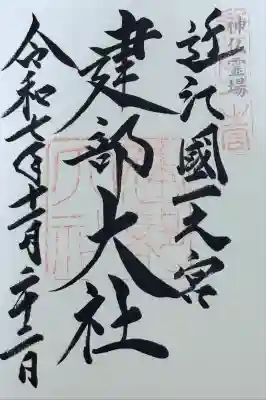 神仏霊場
近江國一之宮
建部大社
令和七年十一月二十三日